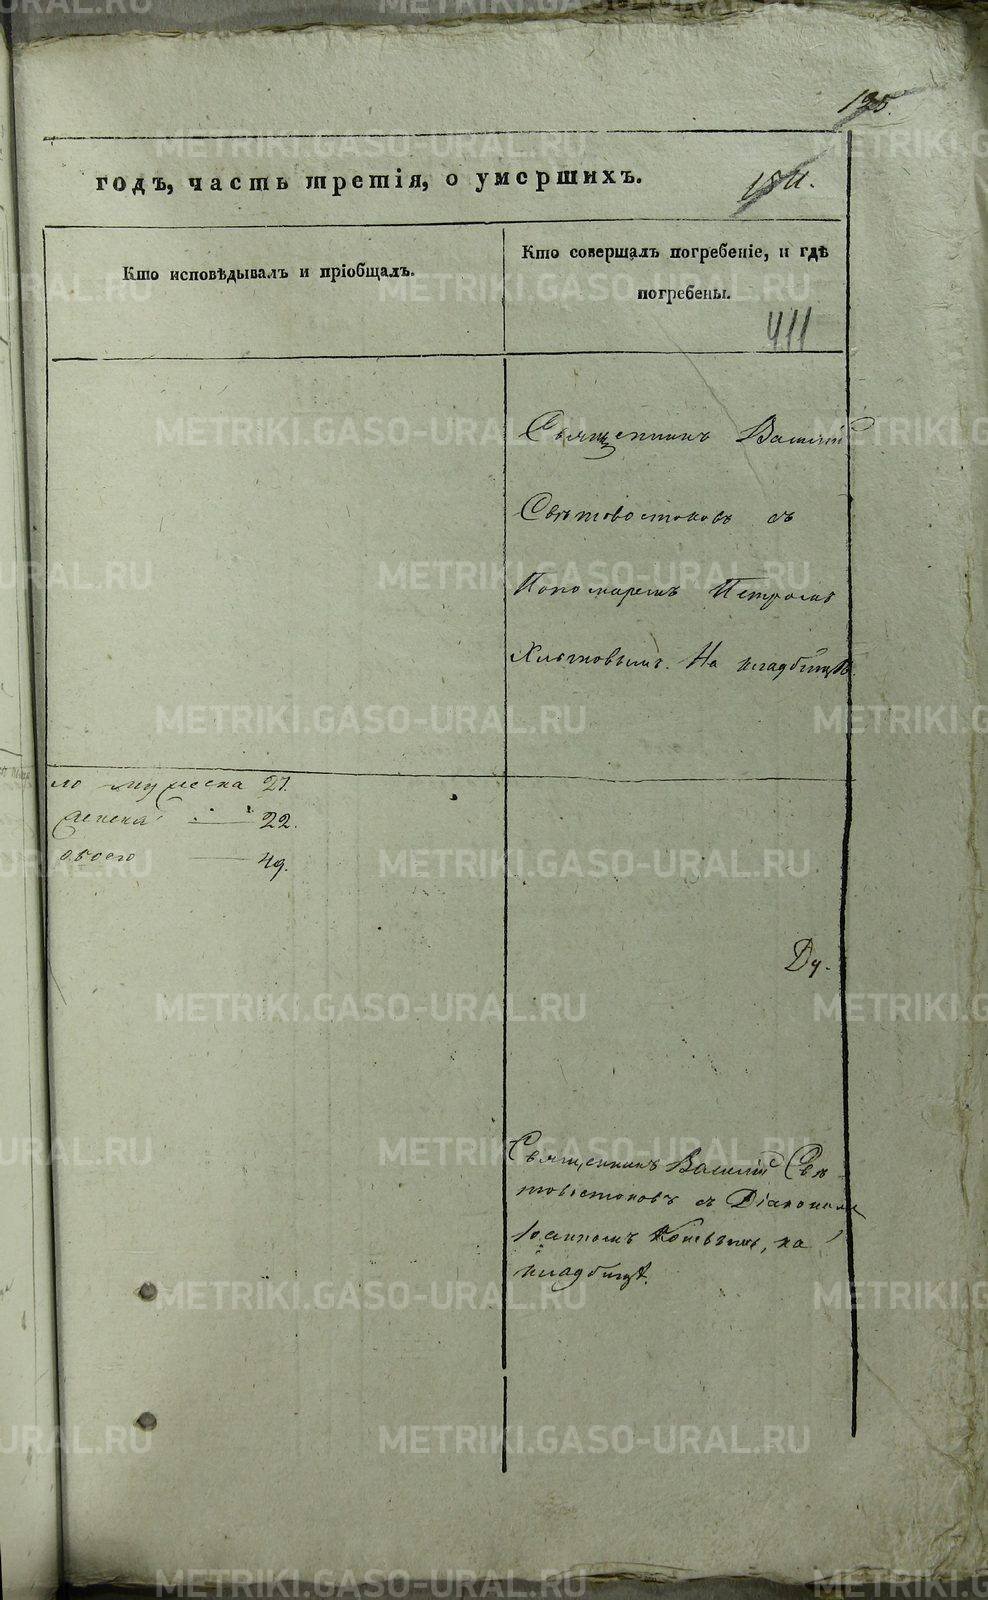 125.
годъ, часть третія, о умершихъ.
Кто исповѣдывалъ и пріобщалъ.
Кто совершалъ погребеніе, и гдѣ
погребены.
411
Священникъ Василій
Свѣтовостоковъ съ
Пономаремъ Петромъ
Хлыновымъ. На кладбищѣ.
ло мужеска 27.
женска 22.
обоего 49.
Ду.
Священникъ Василій Свѣ
товостоковъ съ Діакономъ
Іоанномъ, на
кладбищѣ.
METRIKI.GASO-URAL.RU